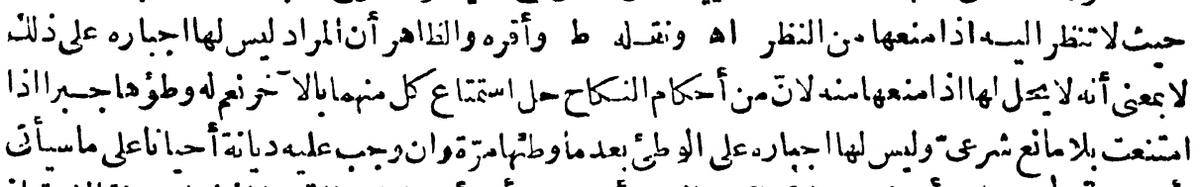 حيث لا تنظر اليه اذا منعها من النظر اه ونقله ط وأقره والظاهر أن المراد ليس لها اجباره على ذلك
لا بمعنى أنه لا يحل لها اذا منعها منه لان من أحكام النكاح حل استمتاع كل منهما بالآخر نعم له وطؤها جبرا اذا
امتنعت بلا مانع شرعي وليس لها اجباره على الوطئ بعد ما وطئها مرة وان وجب عليه ديانة أحيانا على ما سيأتي